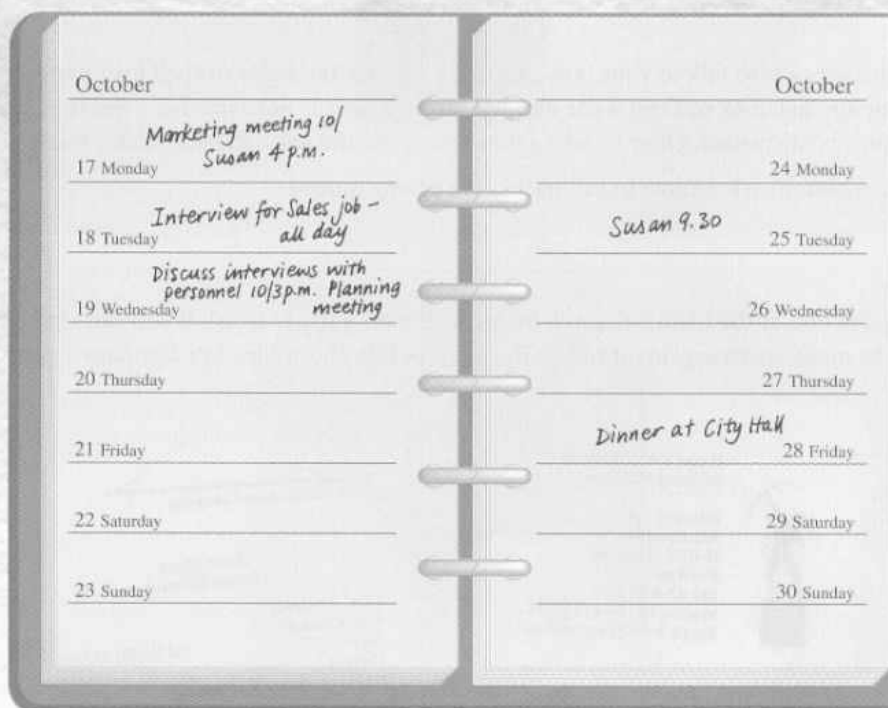 October
Marketing meeting 10/
Susan 4 p.m.
17 Monday
Interview for Sales job –
all day
18 Tuesday
Discuss interviews with
personnel 10/3p.m. Planning
meeting
19 Wednesday
20 Thursday
21 Friday
22 Saturday
23 Sunday
October
24 Monday
Susan 9.30
25 Tuesday
26 Wednesday
27 Thursday
Dinner at City Hall
28 Friday
29 Saturday
30 Sunday